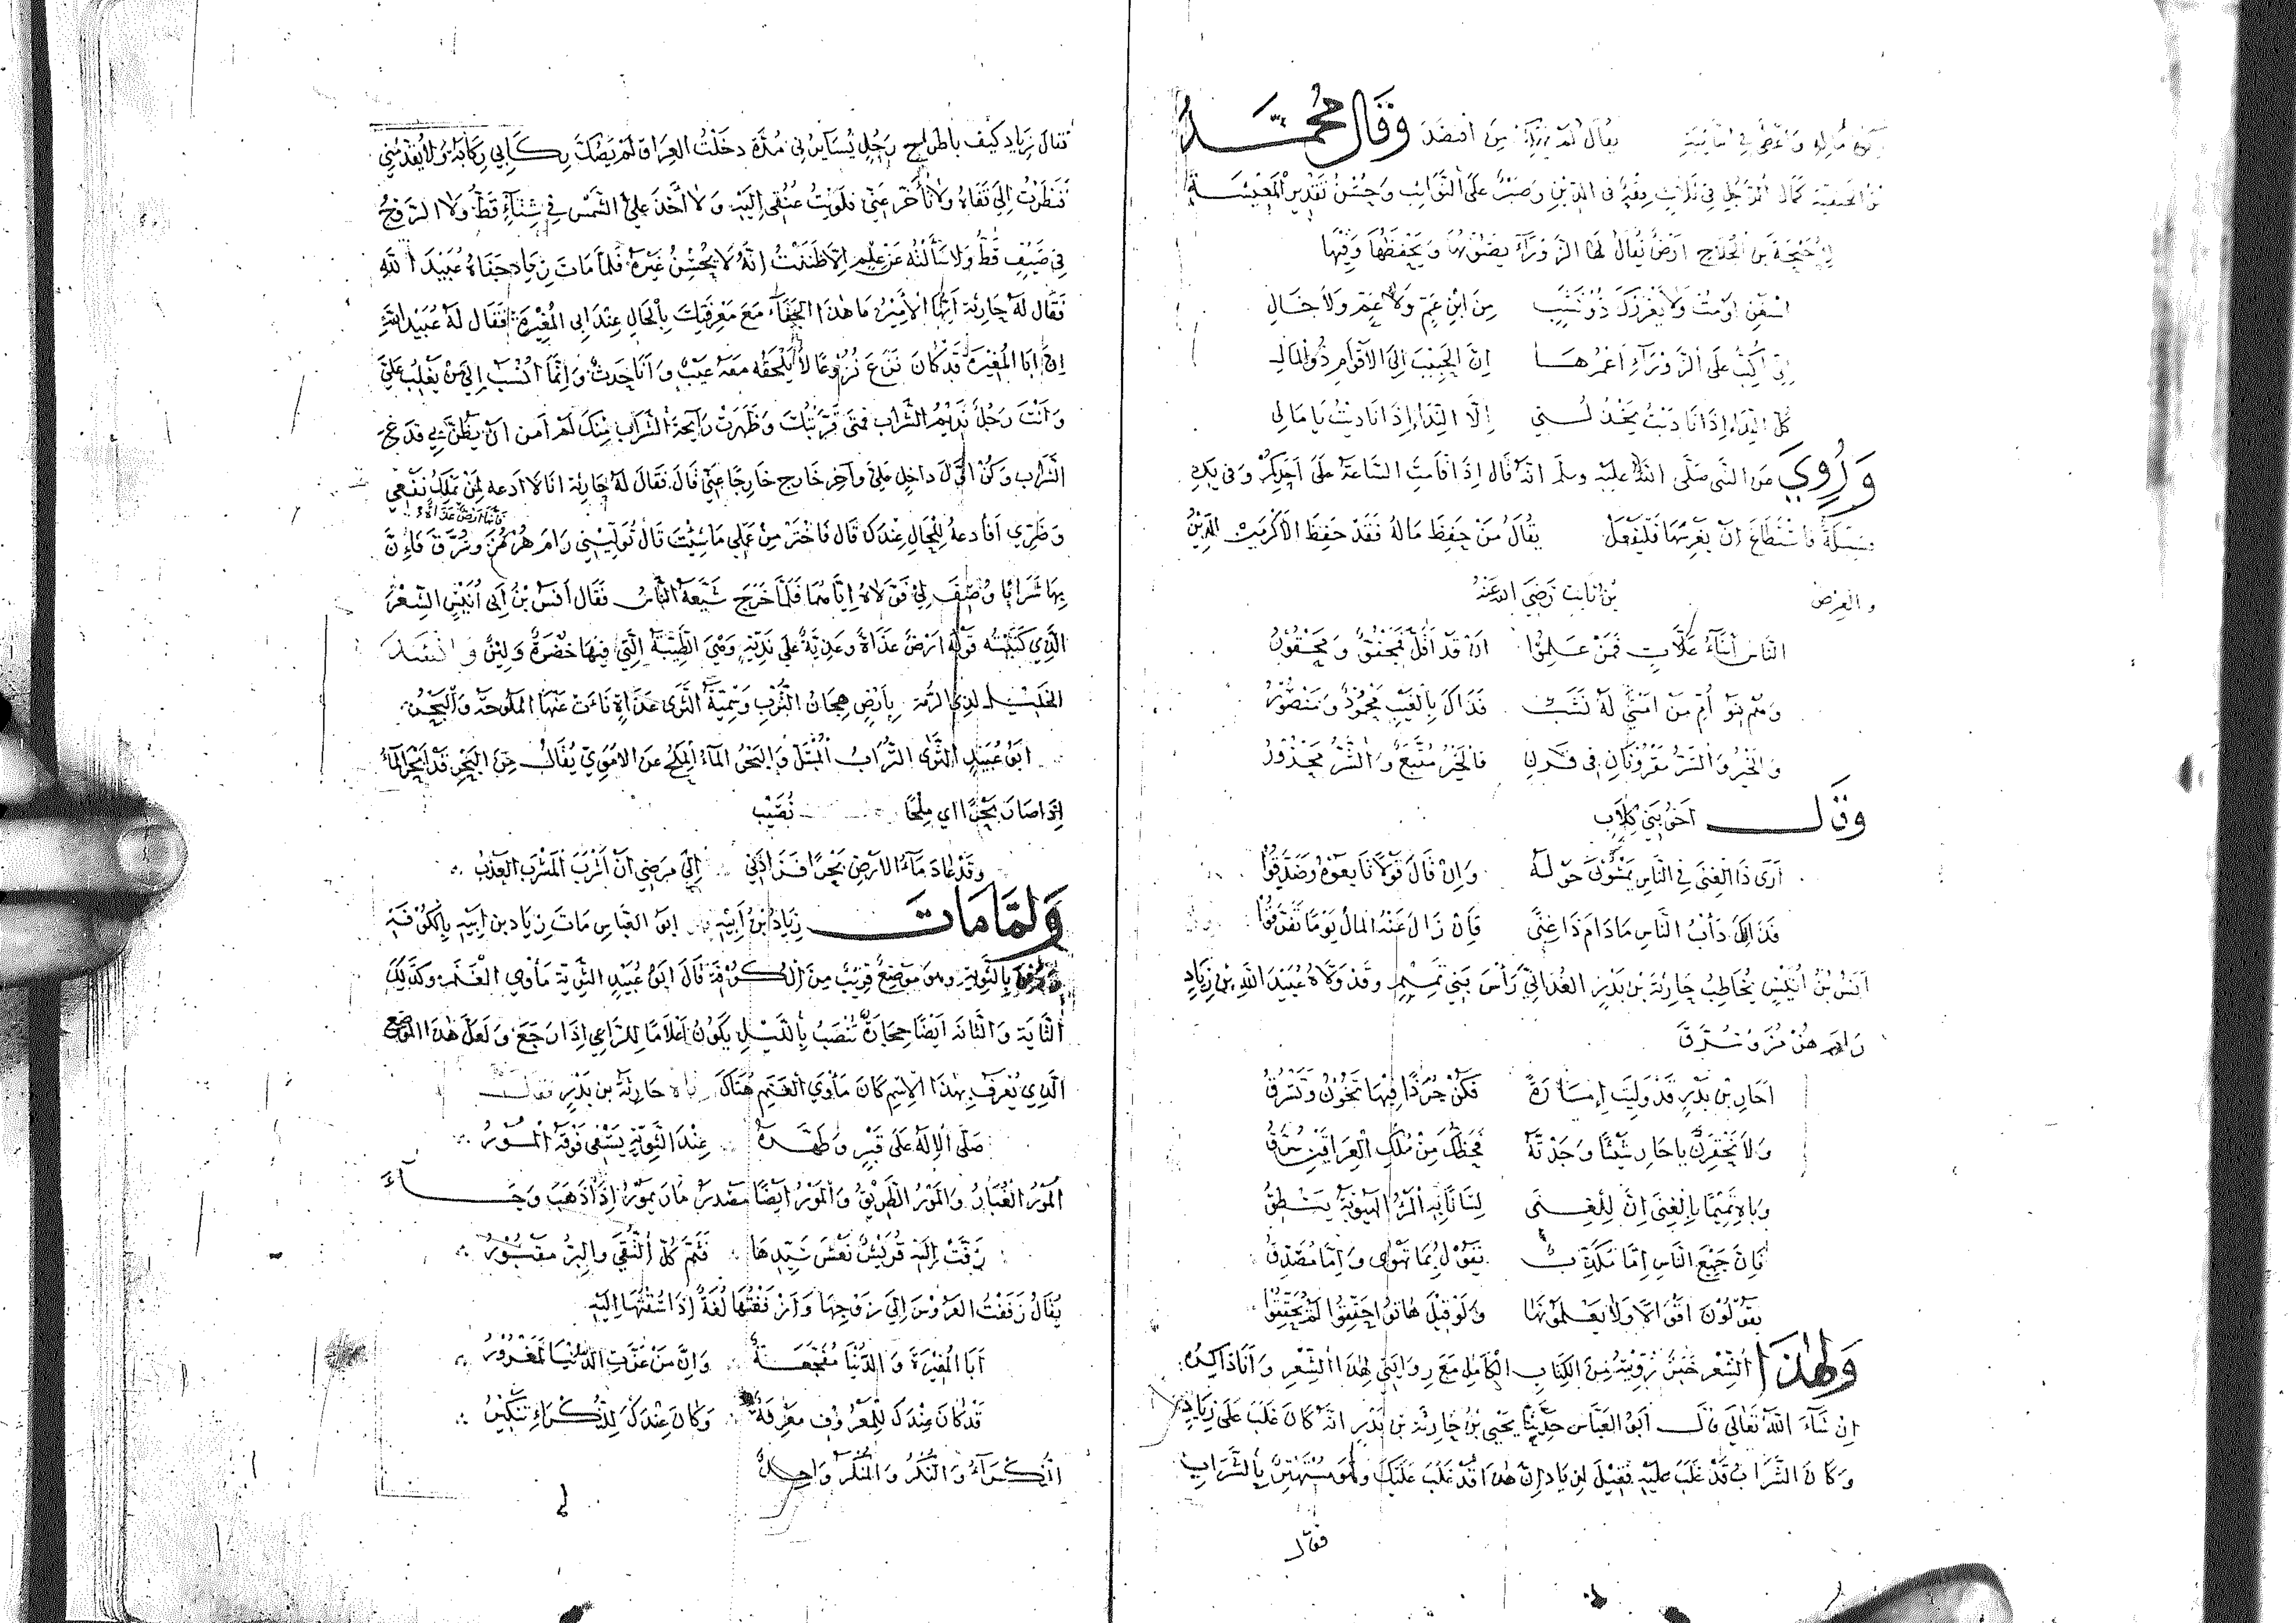 يقال لم يزرأ من اقتصد وَقَال مُحَمَّد
بن الحنفية كمال الرّجُل في ثلاثٍ فِقْهٍ في الدِّينِ وَصَبْرٍ عَلَى النَّوَائِبِ وَحُسْنُ تَقْدِيرِ المَعِيشَةِ
أرضٌ يُقالُ لها الزَّوْرَاءُ
اسْتَغْنِ اوْ مُتْ وَلَا يَغْرُرْكَ ذُو نَشَبٍ مِنَ ابْنِ عَمٍّ وَلَا عَمٍّ وَلَا خَالِ
إنّي أُكِبُّ عَلَى الزَّوْرَاءِ اعْمُرُهَا إنَّ الحَبِيبَ إلَى الأَقْوَامِ ذُو المَالِ
كُلُّ النِّدَاءِ إذَا نَادَيْتُ يَخْذُلُنِي إلَّا النِّدَاءَ إذَا نَادَيْتُ يَا مَالِي
وَرُوِيَ عَن النَّبي صَلَّى اللهُ عليه وسلم انه قال إذَا قَامَتِ السَّاعَةُ عَلَى أحَدِكُمْ وَفي يَدِهِ
فَسِيلَةٌ فاسْتَطَاعَ انْ يَغْرِسَهَا فَلْيَفْعَلْ يُقَالُ مَنْ حَفِظَ مَالَهُ فَقَدْ حَفِظَ الأكْرَمَيْنِ الدِّيْنَ
والعِرْضَ بن ثابت رَضِيَ الله عَنْهُ
النَّاسُ أبْنَاءُ عَلَّاتٍ فَمَنْ عَلِمُوا انْ قَدْ أقَلَّ فَمَجْفُوٌّ وَمَحْقُورُ
وَهُم بَنُو أُمِّ مَنْ امْسَى لَهُ نَشَبٌ فَذَاكَ بِالْغَيْبِ مَحْمُودٌ وَمَنْصُورُ
وَالخَيْرُ وَالشَّرُّ مَقْرُونَانِ فِي قَرَنٍ فَالخَيْرُ مُتَّبَعٌ وَالشَّرُّ مَحْذُورُ
وَقَال أخُو بَنِي كِلَابٍ
أرَى ذَا الغِنَى فِي النَّاسِ يَمْشُونَ حَوْلَهُ وَإنْ قَالَ قَوْلًا تَابَعُوهُ وَصَدَّقُوا
فَذَلِكَ دَأْبُ النَّاسِ مَادَامَ ذَا غِنًى فَإنْ زَالَ عَنْهُ المَالُ يَوْمًا تَفَرَّقُوا
أنَسُ بْنُ أُنَيْسٍ يُخَاطِبُ حَارِثَةَ بن بَدْرٍ الغُدَانِيَّ رَأْسَ بَنِي تَمِيمٍ وقَدْ وَلَّاهُ عُبَيْدُ اللهِ بْنُ زِيَادٍ
رَامَ هُرْمُزَ وَسُرَّقَ
احَارِ بْنَ بَدْرٍ قَدْ وَلِيتَ إمَارَةً فَكُنْ جُرَذًا فِيهَا تَخُونُ وَتَسْرِقُ
وَلَا تَحْقِرَنْ يَاحَارِ شَيْئًا وَجَدْتَهُ فَحَظُّكَ مِنْ مُلْكِ العِرَاقَيْنِ سُرَّقُ
وَبَاهِ تَمِيمًا بِالْغِنَى إنَّ لِلْغِنَى لِسَانًا بِهِ المَرْءُ الهَيُوبَةُ يَنْطِقُ
فَإنَّ جَمِيعَ النَّاسِ إمَّا مُكَذِّبٌ يَقُولُ بِمَا يَهْوَى وَإمَّا مُصَدِّقُ
يَقُولُونَ اقْوَالًا وَلَا يَعْلَمُونَهَا وَلَوْ قِيلَ هَاتُوا حَقِّقُوا لَمْ يُحَقِّقُوا
وَلِهَذَا الشِّعْرِ خَبَرٌ نَرْوِيهِ مِنَ الكِتَابِ الكَامِلِ مَعَ رِوَايَتِي لِهَذَا الشِّعْرِ وَأنَا ذَاكِرُهُ
إنْ شَاءَ اللهُ تَعَالَى قَالَ ابُو العَبَّاس حُدِّثْتُ يَحْيَى بْنُ حَارِثَةَ بن بَدْرٍ انَّهُ كَانَ غَلَبَ عَلَى زِيَادٍ
وَكَانَ الشَّرَابُ قَدْ غَلَبَ عَلَيْهِ فَقِيلَ لِزِيَادٍ إنَّ هَذَا قَدْ غَلَبَ عَلَيْكَ وَهُوَ مُسْتَهْتَرٌ بِالشَّرَابِ
فقال
فقالَ زِيَاد كَيْفَ باطِّرَاحِ رَجُلٍ يُسَايِرُنِي مُذْ دخَلْتُ العِرَاقَ لَمْ يَصْكُكْ رِكَابِي رِكَابَهُ وَلَا تَقَدَّمَنِي
فَنَظَرْتُ إلَى قَفَاهُ وَلَا تَأَخَّرَ عَنِّي فَلَوَيْتُ عُنُقِي إلَيْهِ وَلَا اخَذَ عَلَيَّ الشَّمْسَ فِي شِتَاءٍ قَطُّ وَلَا الرَّوْحَ
فِي صَيْفٍ قَطُّ وَلَا سَأَلْتُهُ عَنْ عِلْمٍ إلَّا ظَنَنْتُ انَّهُ لَا يُحْسِنُ غَيْرَهُ فَلَمَّا مَاتَ زِيَادٌ جَفَاهُ عُبَيْدُ اللهِ
فَقَالَ لَهُ حَارِثَةُ ايُّهَا الأَمِيرُ مَا هَذَا الجَفَاءُ مَعَ مَعْرِفَتِكَ بِالْحَالِ عِنْدَ ابِي المُغِيرَةِ فَقَالَ لَهُ عُبَيْدُ اللهِ
إنَّ ابَا المُغِيرَةِ قَدْ كَانَ بَرَعَ بُرُوعًا لَا يَلْحَقُهُ مَعَهُ عَيْبٌ وَأنَا حَدَثٌ وَإنَّمَا انْسَبُ إلَى مَنْ يَغْلِبُ عَلَيَّ
وَأنْتَ رَجُلٌ نَدِيمُ الشَّرَابِ فَمَتَى قَرَّبْتُكَ وَظَهَرَتْ رَائِحَةُ الشَّرَابِ مِنْكَ لَمْ آمَن انْ يُظَنَّ بِي فَدَعْ
الشَّرَابَ وَكُنْ اوَّلَ دَاخِلٍ عَلَيَّ وَآخِرَ خَارِجٍ عَنِّي قَالَ فَقَالَ لَهُ حَارِثَةُ انَا لَا ادَعُهُ لِمَنْ يَمْلِكُ نَفْعِي
وَضَرِّي أفَأَدَعُهُ لِلْحَالِ عِنْدَكَ قَالَ فَاخْتَرْ مِنْ عَمَلِي مَاشِئْتَ قَالَ تُوَلِّينِي رَامَ هُرْمُزَ وَسُرَّقَ فَإنَّ
فَإنَّهَا أرْضٌ عَذَاةٌ
بِهَا شَرَابًا وُصِفَ لِي فَوَلَّاهُ إيَّاهُمَا فَلَمَّا خَرَجَ شَيَّعَهُ النَّاسُ فَقَالَ أنَسُ بْنُ أبِي أُنَيْسٍ الشِّعْرَ
الَّذِي كَتَبْتُهُ قَوْلُهُ ارْضٌ عَذَاةٌ وَعَذِيَّةٌ عَلَى نَدِيَّةٍ وَهِيَ الطَّيِّبَةُ الَّتِي فِيهَا خَضْرَةٌ وَلِينٌ وَانْشَدَ
الخَلِيلُ لِذِي الرُّمَّةِ بِأَرْضٍ هِجَانِ التُّرْبِ وَسْمِيَّةِ الثَّرَى عَذَاةٍ نَأَتْ عَنْهَا المُلُوحَةُ وَالبَحْرُ
ابُو عُبَيْدٍ الثَّرَى التُّرَابُ المُبْتَلُّ وَالبَحْرُ المَاءُ المِلْحُ عَنِ الأُمَوِيِّ يُقَالُ مِنَ البَحْرِ قَدْ ابْحَرَ المَاءُ
إذَا صَارَ بَحْرًا اي مِلْحًا نُصَيْب
وَقَدْ عَادَ مَاءُ الأرْضِ بَحْرًا فَزَادَنِي إلَى مَرَضِي أنْ أبْحَرَ المَشْرَبُ العَذْبُ
وَلَمَّا مَاتَ زِيَادُ بْنُ أبِيْهِ ابُو العَبَّاسِ مَاتَ زِيَادُ بن ابِيهِ بِالكُوفَةِ
وَدُفِنَ بِالثَّوِيَّةِ وَهُوَ مَوْضِعٌ قَرِيبٌ مِنَ الكُوفَةِ قَالَ ابُو عُبَيْدٍ الثَّوِيَّةُ مَأْوَى الغَنَمِ وَكَذَلِكَ
الثَّايَةُ وَالثَّايَةُ أيْضًا حِجَارَةٌ تُنْصَبُ بِاللَّيْلِ يَكُونُ أعْلَامًا لِلرَّاعِي إذَا رَجَعَ وَلَعَلَّ هَذَا المَوْضِعَ
الَّذِي يُعْرَفُ بِهَذَا الاِسْمِ كَانَ مَأْوَى الغَنَمِ هُنَاكَ حَارِثَةُ بن بَدْرٍ فَقَالَ
صَلَّى الإلَهُ عَلَى قَبْرٍ وَطَهَّرَهُ عِنْدَ الثَّوِيَّةِ يَسْفِي فَوْقَهُ المُورُ
المُورُ الغُبَارُ وَالمَوْرُ الطَّرِيقُ وَالمَوْرُ أيْضًا مَصْدَرُ مَارَ يَمُورُ إذَا ذَهَبَ وَجَاءَ
زَفَّتْ إلَيْهِ قُرَيْشٌ نَعْشَ سَيِّدِهَا فَثَمَّ كُلُّ التُّقَى وَالبِرِّ مَقْبُورُ
يُقَالُ زَفَفْتُ العَرُوسَ إلَى زَوْجِهَا وَأزْفَفْتُهَا لُغَةٌ إذَا سُقْتُهَا إلَيْهِ
أبَا المُغِيرَةِ وَالدُّنْيَا مُفَجِّعَةٌ وَإنَّ مَنْ غَرَّتِ الدُّنْيَا لَمَغْرُورُ
قَدْ كَانَ عِنْدَكَ لِلْمَعْرُوفِ مَعْرِفَةٌ وَكَانَ عِنْدَكَ لِلنَّكْرَاءِ تَنْكِيرُ
النَّكْرَاءُ وَالنُّكْرُ وَالمُنْكَرُ وَاحِدٌ